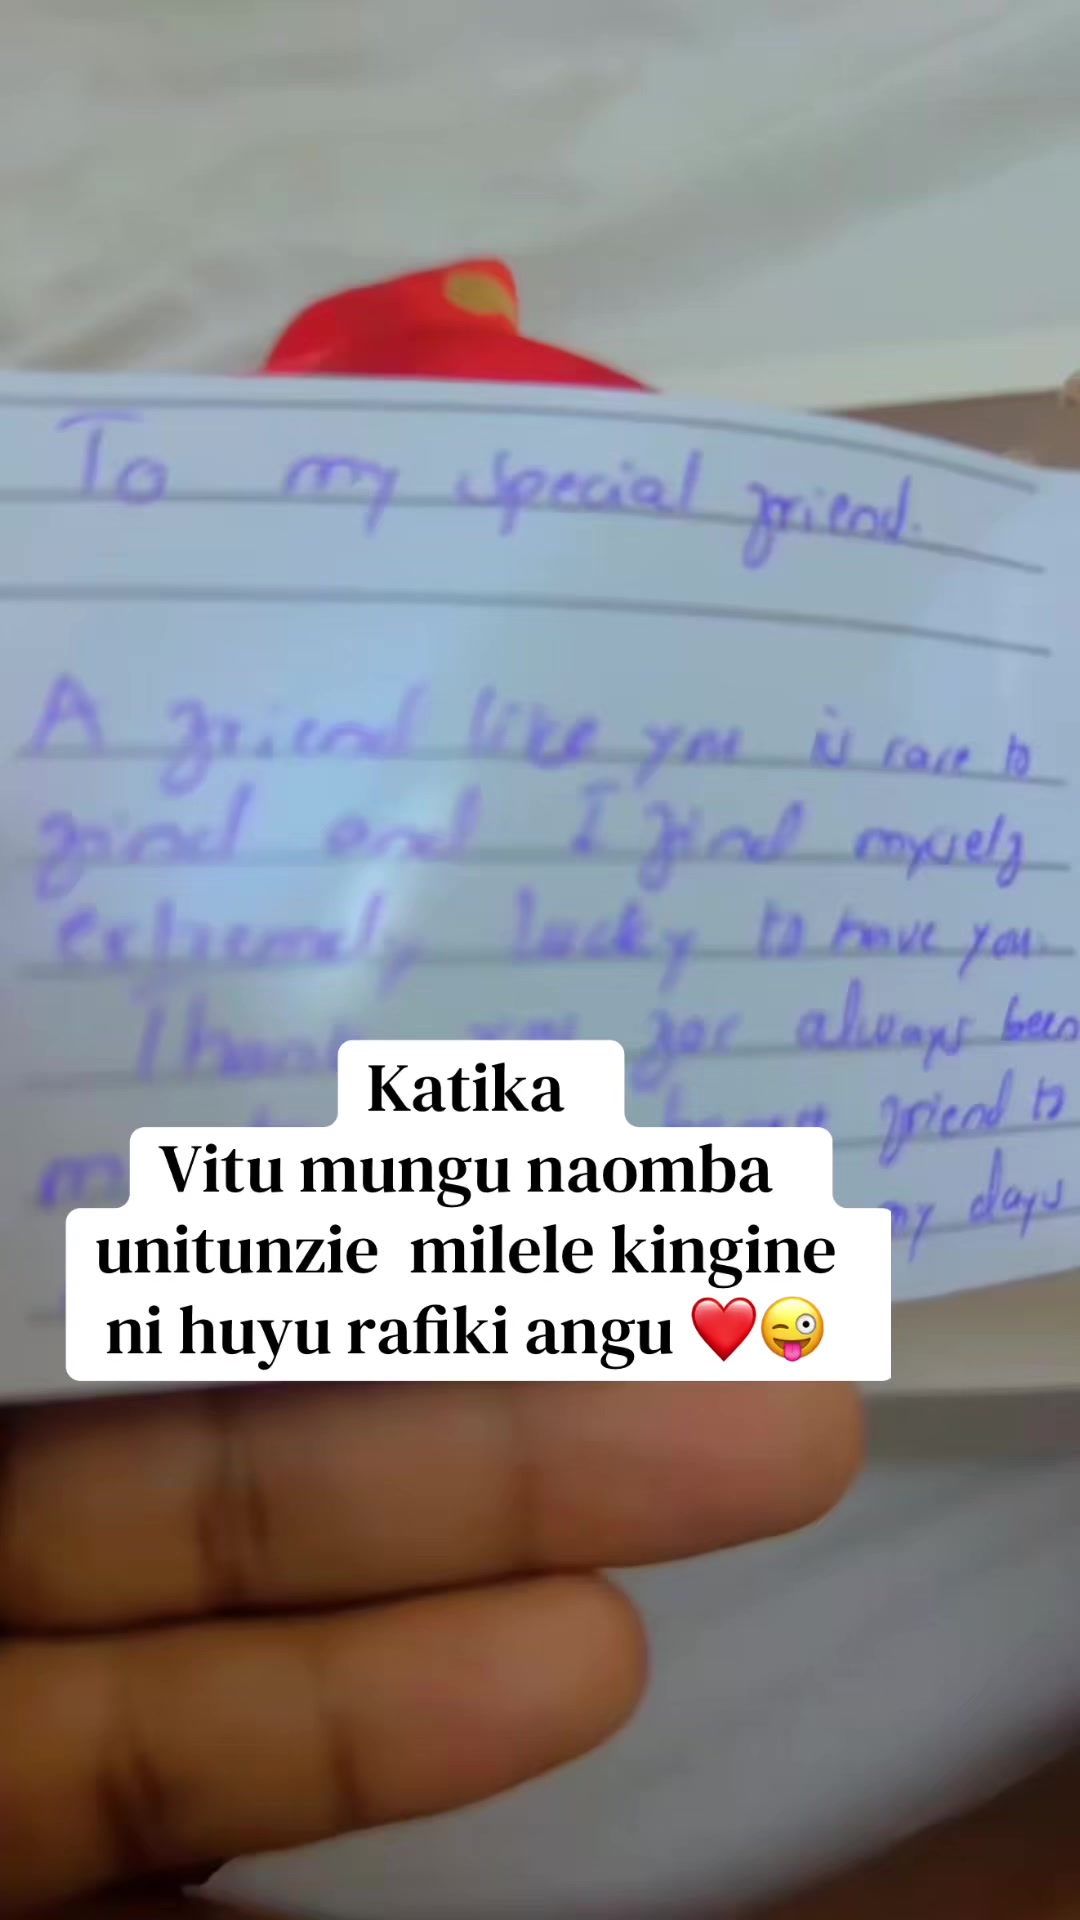 To my special friend.
A friend like you is rare to
find and I find myself
extremely lucky to have you.
Thank you for always been
friend to
my days
Katika
Vitu mungu naomba
unitunzie milele kingine
ni huyu rafiki angu ❤️😜